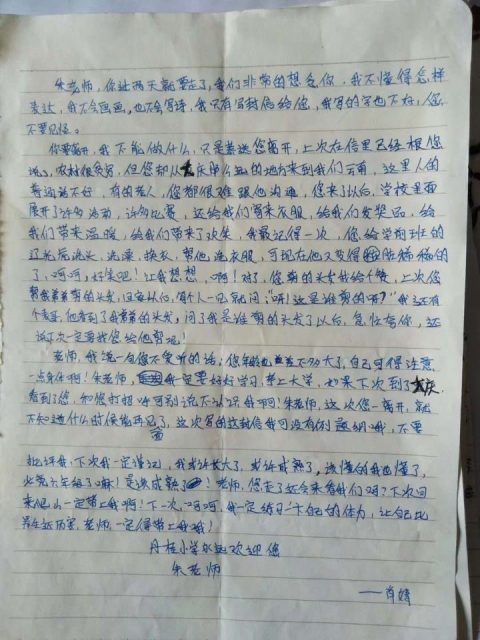 朱老师，你这两天就要走了，我们非常的想念你，我不懂得怎样
表达，我不会画画，也不会写诗，我只有写封信给您，我写的字也不好，您
不要见怪。
你要离开，我不能做什么，只是着送您离开，上次在信里已经跟您
说了，农村很贫穷，但您却从重庆那么远的地方来到我们云南，这里人的
普通话不好，有的老人，您都很难跟他沟通，您来了以后，学校里面
展开了许多活动，许多比赛，还给我们带来衣服，给我们发奖品，给
我们带来温暖，给我们带来了欢乐，我最记得一次，您给学前班的
洗头，洗澡，换衣，帮他洗衣服，可现在他又变得脏稀稀的
了，呵呵，好笑吧！让我想想，啊！对了，您剪的头发我给个赞，上次您
帮我弟弟剪的头发，回家以后，每个人一见就问，“呀！这是谁剪的啊？”我还有
个表哥，他看到了我弟弟的头发，问了我是谁剪的头发了以后，急忙夸你，还
说下次一定要我您给他剪呢！
老师，我说一句您不爱听的话：您年龄也不大了，自己可得注意
一点身体啊！朱老师，我一定要好好学习，考上大学，如果下次到了重庆
看到了您，和您打招呼可别说不认识我啊！朱老师，这次您一离开，就
不知道什么时候能再见了，这次写的这封信我可没有的哦，不要
面
批评我，下次我一定谨记，我或许长大了，或许成熟了，该懂的我也懂了，
六年级了嘛！变成熟了！老师，您走了还会来看我们吗？下次回
来爬山一定带上我啊！下一次，呵呵，我一定练习一下自己的体力，让自己比
现在还厉害，老师一定得带上我哦！
丹桂小学永远欢迎您
朱老师
——肖婧